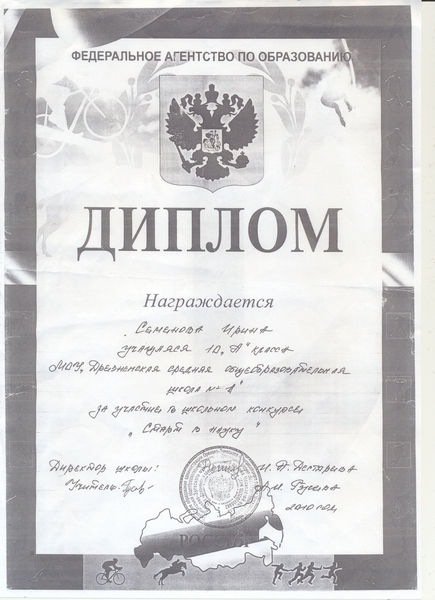 ФЕДЕРАЛЬНОЕ АГЕНТСТВО ПО ОБРАЗОВАНИЮ
ДИПЛОМ
Награждается
Семенова Ирина
учащаяся 10 „А" класса
МОУ „Дрезненская средняя общеобразовательная
школа № 1"
за участие в школьном конкурсе
„Старт в науку"
Директор школы: И. А.
Учитель:
2010 год
РОССИЯ